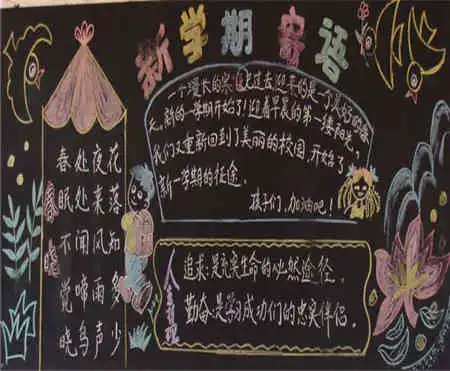 新学期寄语
春晓
春眠不觉晓
处处闻啼鸟
夜来风雨声
花落知多少
一个漫长的寒假已过去,迎来的是一个美好的春
天。新的一学期开始了!迎着早晨的第一缕阳光,
我们又重新回到了美丽的校园,开始了
新一学期的征途。
孩子们,加油吧!
追求:是充实生命的必然途径。
勤奋:是学习成功们的忠实伴侣。